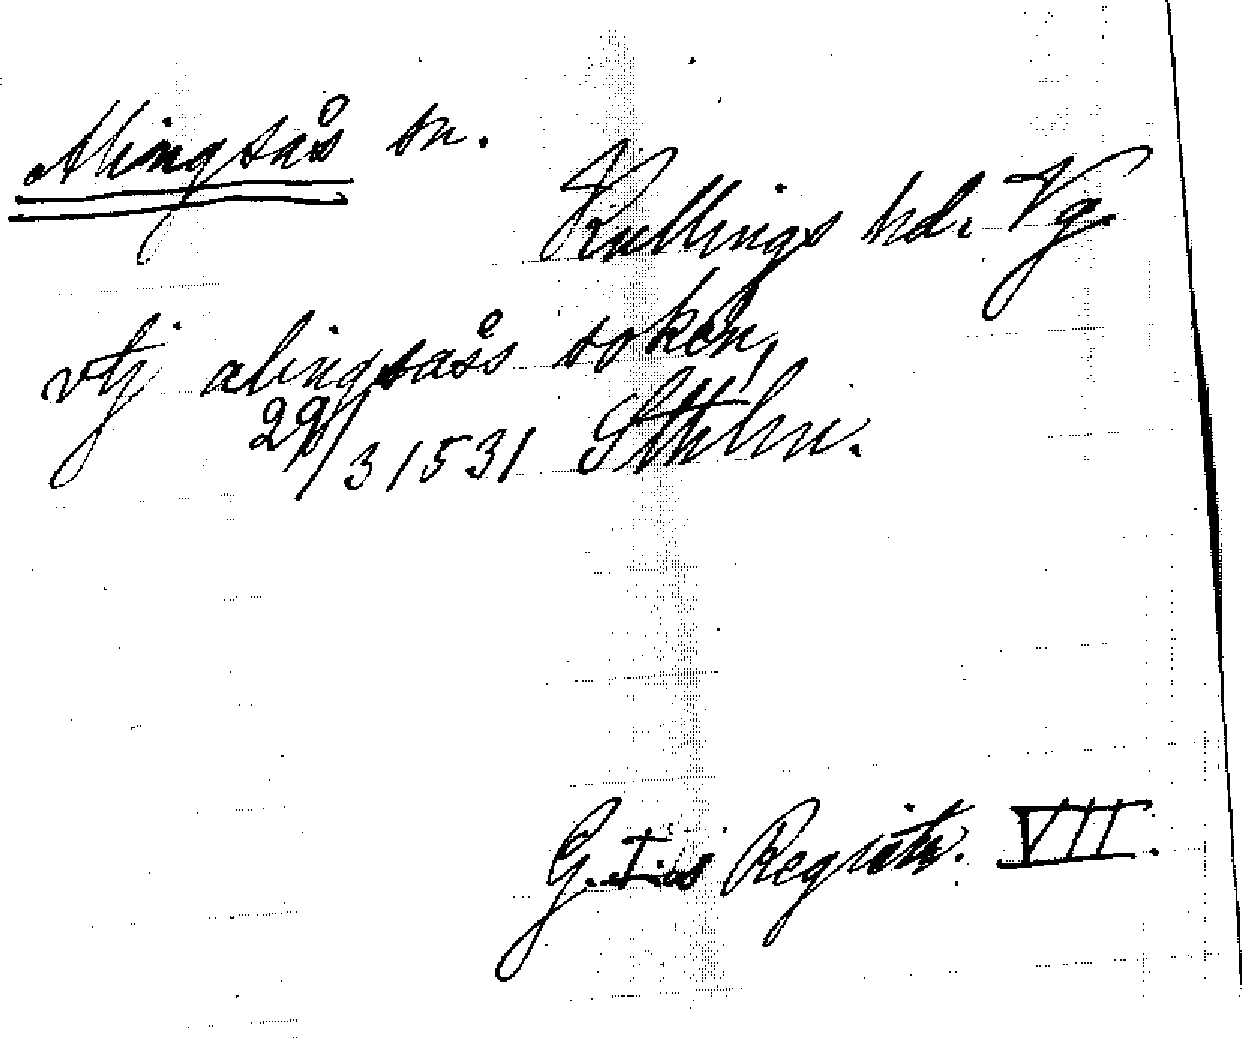 Alingsås sn.
Kullings hd. Vg.
vtj alingsåss soken,
29/3 1531 Sthlm.
G. I:s Registr. VII.